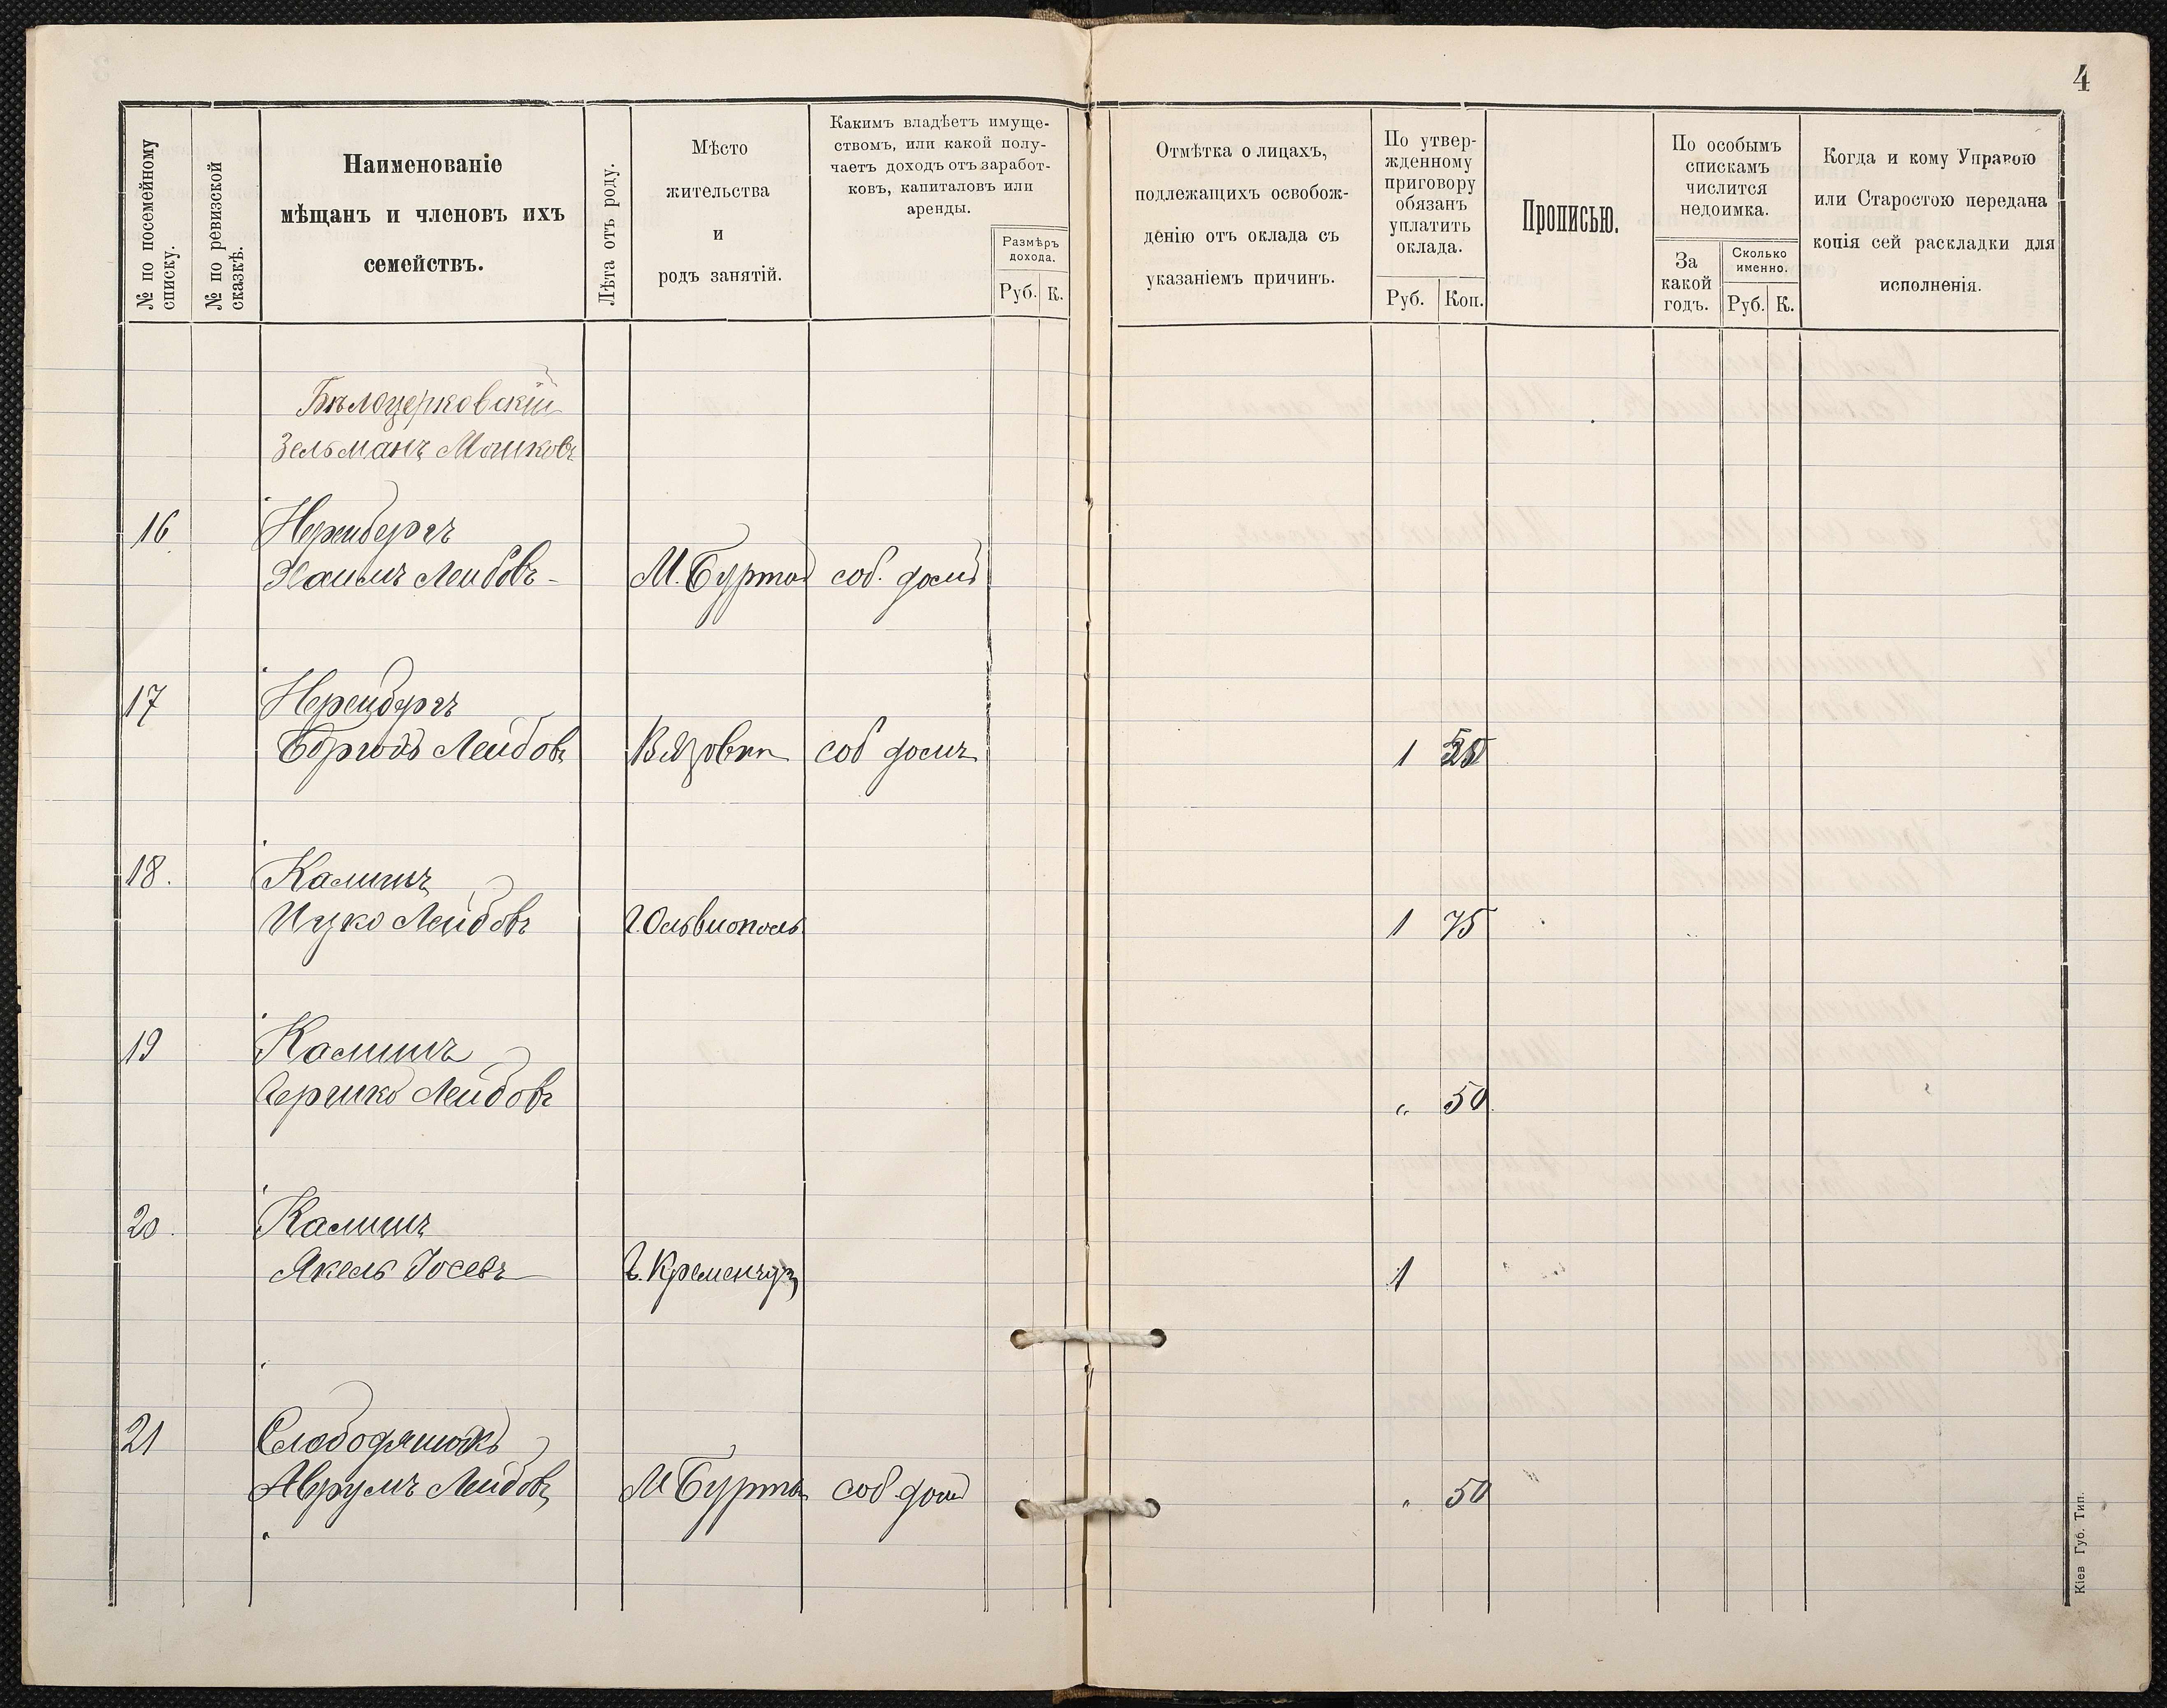 4
№ по посемейному
списку.
№ по ревизской
сказкѣ.
Наименованіе
мѣщанъ и членовъ ихъ
семействъ.
Лѣта отъ роду.
Мѣсто
жительства
и
родъ занятій.
Какимъ владѣетъ имуще-
ствомъ, или какой полу-
чаетъ доходъ отъ заработ-
ковъ, капиталовъ или
аренды.
Размѣръ
дохода.
Руб. К.
Отмѣтка о лицахъ,
подлежащихъ освобож-
денію отъ оклада съ
указаніемъ причинъ.
По утвер-
жденному
приговору
обязанъ
уплатить
оклада.
Руб. Коп.
Прописью.
По особымъ
спискамъ
числится
недоимка.
За
какой
годъ.
Сколько
именно.
Руб. К.
Когда и кому Управою
или Старостою передана
копія сей раскладки для
исполненія.
Бѣлоцерковскій
Зельманъ Мошковъ
16
Хаимъ Лейбовъ М. Бурты соб. домъ
17
Лейбовъ соб домъ 1
18. Калишъ
Ицко Лейбовъ г. Ольвиополь 1 75
19 Калишъ
Гершко Лейбовъ " 50
20. Калишъ
Якель Іосевъ г. Кременчугъ 1
21 Слободянюкъ
Аврумъ Лейбовъ М Бурты соб домъ " 50
Кіев Губ. Тип.